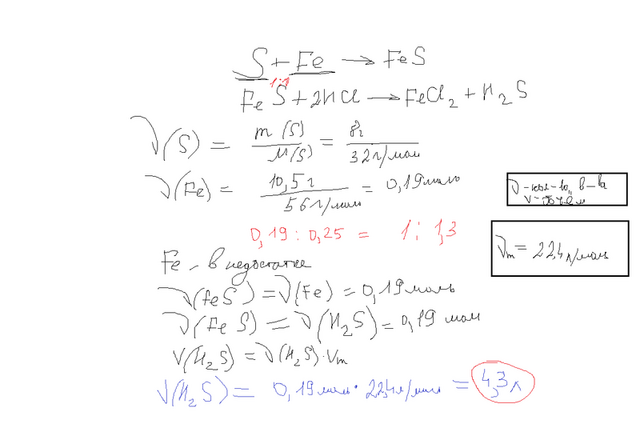 S + Fe → FeS
1:1
FeS + 2HCl → FeCl₂ + H₂S
ν(S) = m(S) / M(S) = 8г / 32г/мол
ν(Fe) = 10,5г / 56г/мол = 0,19моль
ν - кол-во в-ва
V -
0,19 : 0,25 = 1 : 1,3
Vm = 22,4 л/моль
Fe - в недостатке
ν(FeS) = ν(Fe) = 0,19 моль
ν(FeS) = ν(H₂S) = 0,19 мол
V(H₂S) = ν(H₂S)·Vm
V(H₂S) = 0,19мол · 22,4л/мол = 4,3л